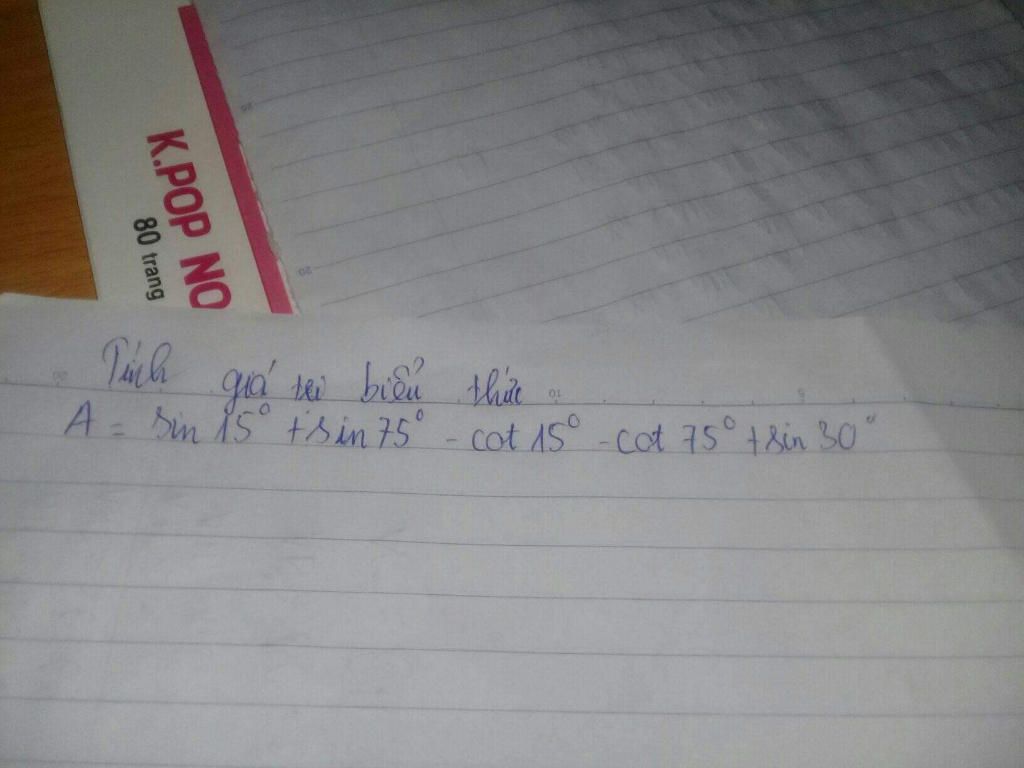 K.POP NO
80 trang
Tính giá trị biểu thức
A = sin 15° + sin 75° - cot 15° - cot 75° + sin 30°